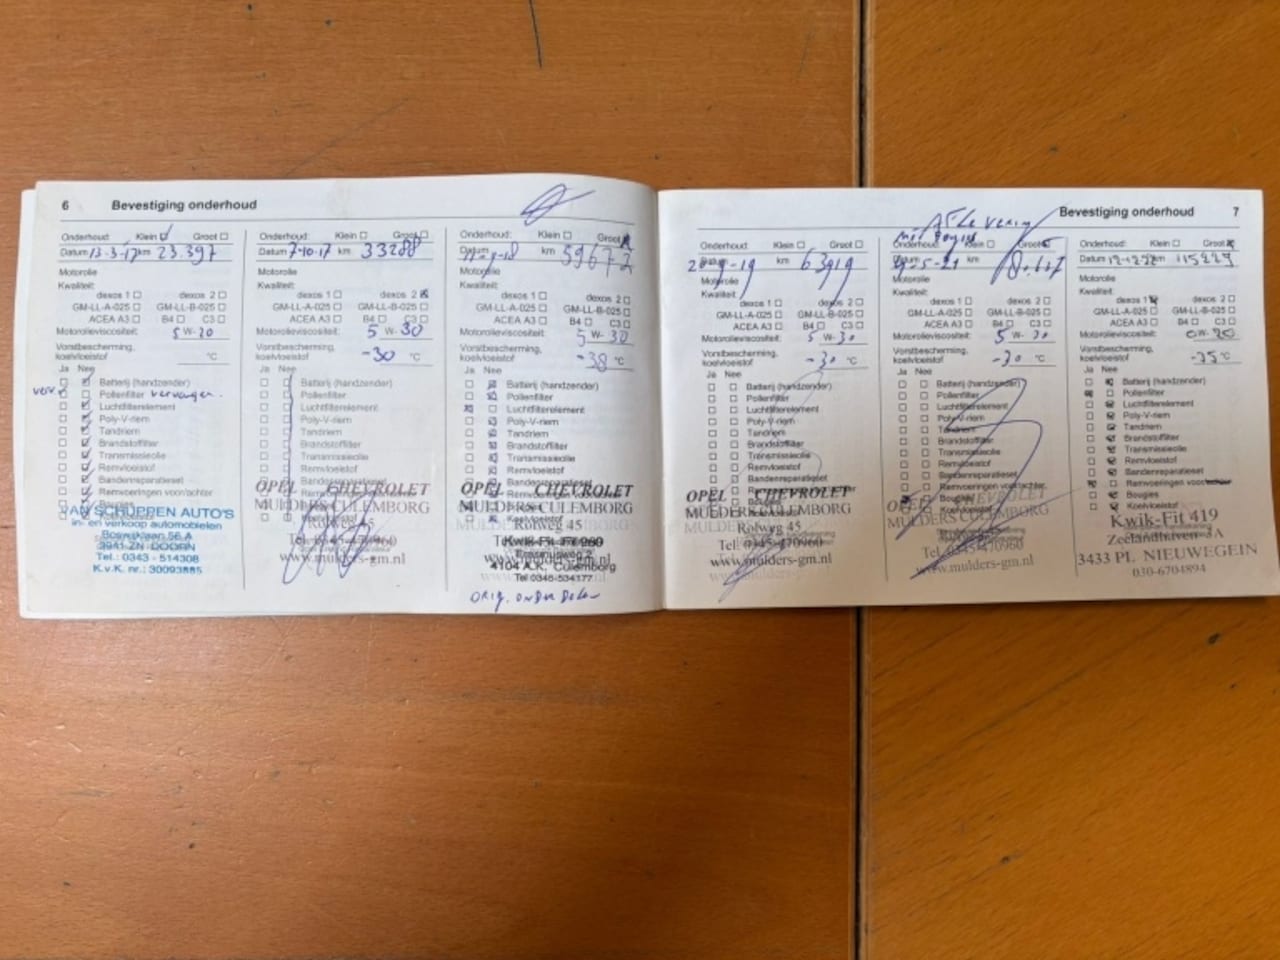 6 Bevestiging onderhoud
Onderhoud: Klein Groot
Datum 13-3-17 km 23.397
Motorolie
Kwaliteit:
dexos 1 dexos 2
GM-LL-A-025 GM-LL-B-025
ACEA A3 B4 C3
Motorolieviscositeit: 5 W-20
Vorstbescherming,
koelvloeistof °C
Ja Nee
Batterij (handzender)
Pollenfilter vervangen.
Luchtfilterelement
Poly-V-riem
Tandriem
Brandstoffilter
Transmissieolie
Remvloeistof
Bandenreparatieset
Remvoeringen voor/achter
Bougies
VAN SCHUPPEN AUTO'S
in- en verkoop automobielen
Boswijklaan 56 A
3941 ZN DOORN
Tel.: 0343 - 514308
K.v.K. nr.: 30093885
Onderhoud: Klein Groot
Datum 7-10-17 km 33288
Motorolie
Kwaliteit:
dexos 1 dexos 2
GM-LL-A-025 GM-LL-B-025
ACEA A3 B4 C3
Motorolieviscositeit: 5 W-30
Vorstbescherming,
koelvloeistof -30 °C
Ja Nee
Batterij (handzender)
Pollenfilter
Luchtfilterelement
Poly-V-riem
Tandriem
Brandstoffilter
Transmissieolie
Remvloeistof
Bandenreparatieset
OPEL CHEVROLET
MULDERS CULEMBORG
Rolweg 45
Tel. 0345-470960
www.mulders-gm.nl
Onderhoud: Klein Groot
Datum km 59672
Motorolie
Kwaliteit:
dexos 1 dexos 2
GM-LL-A-025 GM-LL-B-025
ACEA A3 B4 C3
Motorolieviscositeit: 5 W-30
Vorstbescherming,
koelvloeistof -38 °C
Ja Nee
Batterij (handzender)
Pollenfilter
Luchtfilterelement
Poly-V-riem
Tandriem
Brandstoffilter
Transmissieolie
Remvloeistof
Bandenreparatieset
OPEL CHEVROLET
MULDERS CULEMBORG
Koelvloeistof
Rolweg 45
Kwik-Fit 260
Erasmusweg 2
4104 A.K. Culemborg
Tel 0345-534177
www.mulders-gm.nl
orig. onderdelen
Bevestiging onderhoud 7
Onderhoud: Klein Groot
Datum 20-9-19 km 63919
Motorolie
Kwaliteit:
dexos 1 dexos 2
GM-LL-A-025 GM-LL-B-025
ACEA A3 B4 C3
Motorolieviscositeit: 5 W-30
Vorstbescherming,
koelvloeistof -30 °C
Ja Nee
Batterij (handzender)
Pollenfilter
Luchtfilterelement
Poly-V-riem
Tandriem
Brandstoffilter
Transmissieolie
Remvloeistof
Bandenreparatieset
Remvoeringen voor/achter
OPEL CHEVROLET
MULDERS CULEMBORG
Rolweg 45
Tel. 0345-470960
www.mulders-gm.nl
Onderhoud: Klein Groot
Datum km
Motorolie
Kwaliteit:
dexos 1 dexos 2
GM-LL-A-025 GM-LL-B-025
ACEA A3 B4 C3
Motorolieviscositeit: 5 W-30
Vorstbescherming,
koelvloeistof -30 °C
Ja Nee
Batterij (handzender)
Pollenfilter
Luchtfilterelement
Poly-V-riem
Tandriem
Brandstoffilter
Transmissieolie
Remvloeistof
Bandenreparatieset
Remvoeringen voor/achter
Bougies
OPEL CHEVROLET
Koelvloeistof
MULDERS CULEMBORG
Rolweg 45
Tel. 0345-470960
www.mulders-gm.nl
Onderhoud: Klein Groot
Datum 12-12-22 km 115229
Motorolie
Kwaliteit:
dexos 1 dexos 2
GM-LL-A-025 GM-LL-B-025
ACEA A3 B4 C3
Motorolieviscositeit: 0W-20
Vorstbescherming,
koelvloeistof -35 °C
Ja Nee
Batterij (handzender)
Pollenfilter
Luchtfilterelement
Poly-V-riem
Tandriem
Brandstoffilter
Transmissieolie
Remvloeistof
Bandenreparatieset
Remvoeringen voor/achter
Bougies
Koelvloeistof
Kwik-Fit 419
Zeelandhaven 3A
3433 PL NIEUWEGEIN
030-6704894